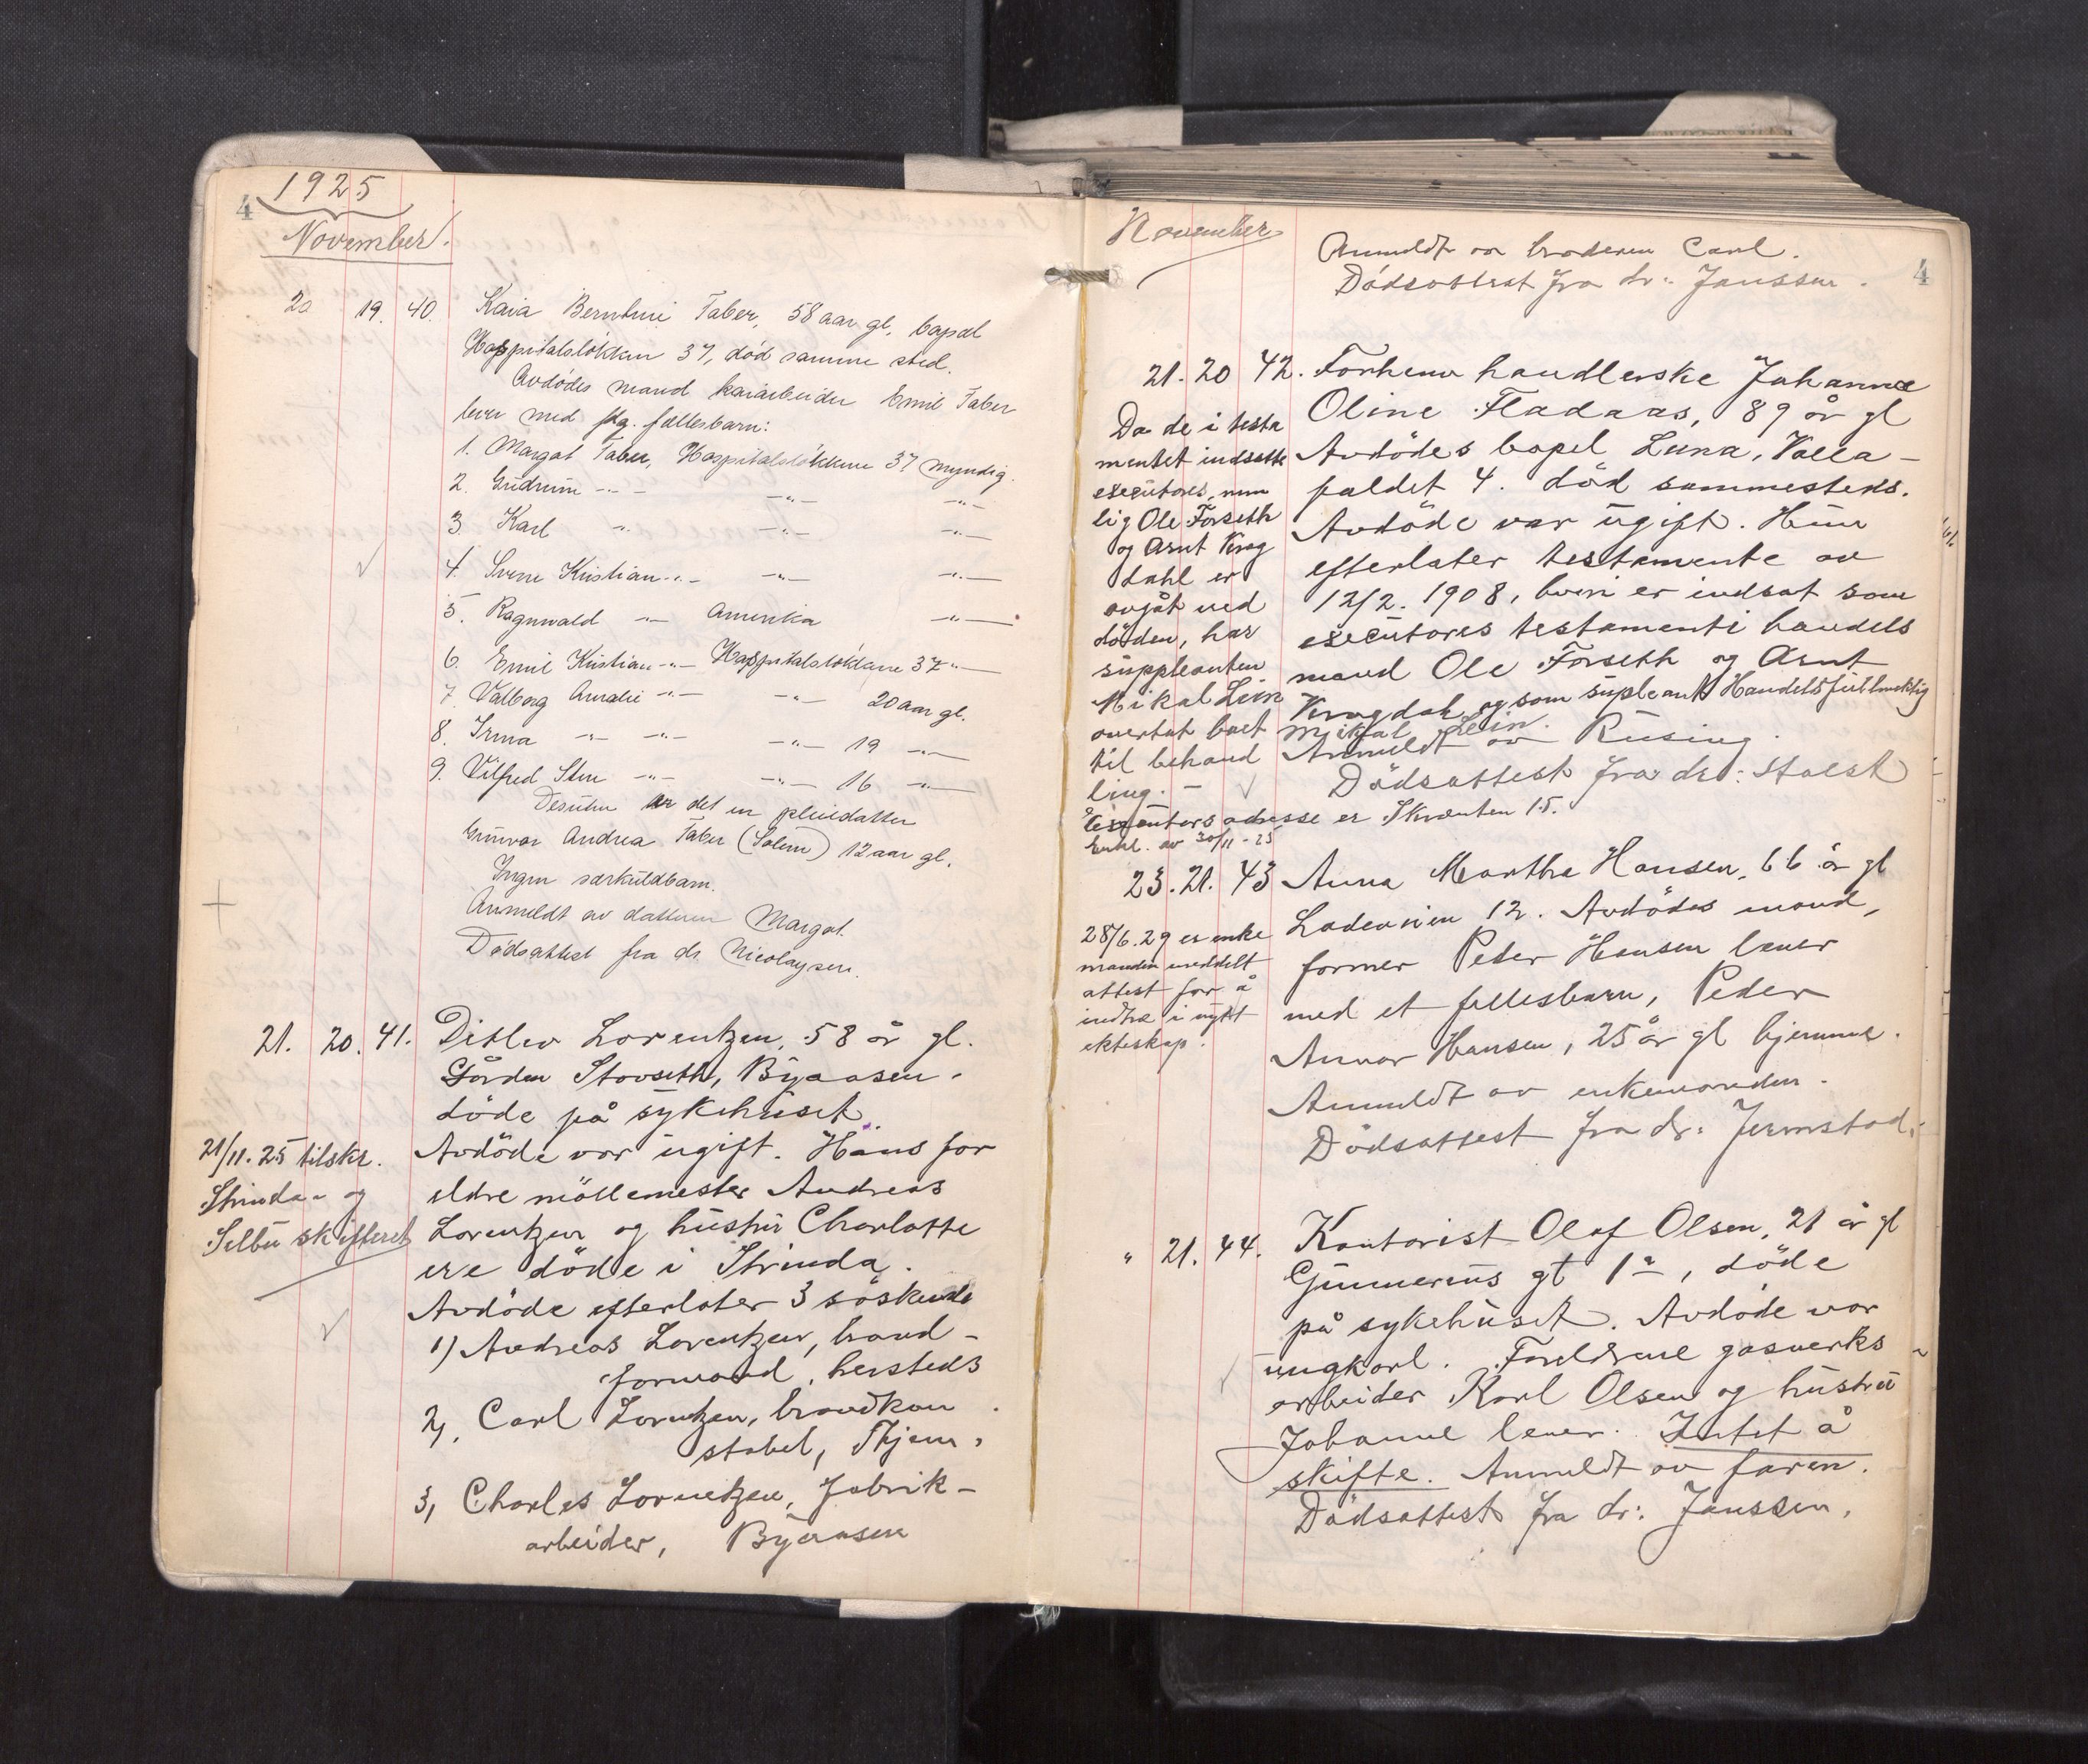 4
1925
November.
20 19. 40. Kaia Berntine Taber, 58 aar gl. bopæl
Hospitalsløkken 37, død samme sted.
Avdødes mand kaiarbeider Emil Taber
lever med flg. fællesbarn:
1. Margot Taber, Hospitalsløkken 37 myndig.
2. Gudrun -"- -"- -"-
3. Karl -"- -"- -"-
4. Sverre Kristian -"- -"- -"-
5. Ragnwald -"- Amerika -"-
6. Emil Kristian -"- Hospitalsløkkene 37 -"-
7. Valborg Amalie -"- -"- 20 aar gl.
8. Irma -"- -"- -"- 19 -"-
9. Vilfred Sten -"- -"- 16 -"-
Desuten er det en pleiedatter
Gunvor Andrea Taber (Solem) 12 aar gl.
Ingen særkuldbarn.
Anmeldt av datteren Margot.
Dødsattest fra dr Nicolaysen.
21. 20. 41. Ditlev Lorentzen, 58 år gl.
Gården Stovseth, Byaasen.
døde på sykehuset.
21/11. 25 tilskr.
Strinda- og
Selbu skifteret
Avdöde var ugift. Hans for
eldre möllemester Andreas
Lorentzen og hustru Charlotte
ere döde i Strinda.
Avdöde efterlater 3 söskende
1) Andreas Lorentzen, brand-
formand, hersteds
2, Carl Lorentzen, brandkon
stabel, Thjem,
3, Charles Lorentzen, fabrik-
arbeider, Byaasen
November
4
Anmeldt av broderen Carl.
Dödsattest fra dr: Janssen.
21. 20 42. Forhenv handlerske Johanna
Oline Fladaas, 89 år gl
Avdödes bopel Luna, Valla-
faldet 4. död sammesteds.
Avdöde var ugift. Hun
efterlater testamente av
12/2. 1908, hvori er indsat som
executores testamenti handels
mand Ole Forseth og Arnt
Krogdah og som supleant Handelsfuldmektig
Mikal Lein.
Anmeldt av Rusing.
Dödsattest fra dr: Stalst
Da de i testa
mentet indsatte
executores, nem
lig Ole Forseth
og Arnt Krog
dahl er
avgåt ved
döden, har
suppleanten
Mikal Lein
overtat boet
til behand
ling. -
Executors adresse er Skrænten 15.
Erkl. av 30/11 - 25
23. 21. 43 Anna Martha Hansen, 66 år gl
Ladeveien 12. Avdödes mand,
former Peder Hansen lever
med et fellesbarn, Peder
Anvar Hansen, 25 år gl hjemme.
Anmeldt av enkemanden.
Dödsattest fra dr: Jermstad.
28/6. 29 er enke
manden meddelt
attest for å
indtræ i nytt
ekteskap.
" 21. 44. Kontorist Olaf Olsen, 21 år gl
Gunnerus gt 1a, döde
på sykehuset. Avdöde var
ungkarl. Foreldrene gasverks
arbeider Karl Olsen og hustru
Johanne lever. Intet å
skifte. Anmeldt av faren.
Dödsattest fra dr: Janssen.